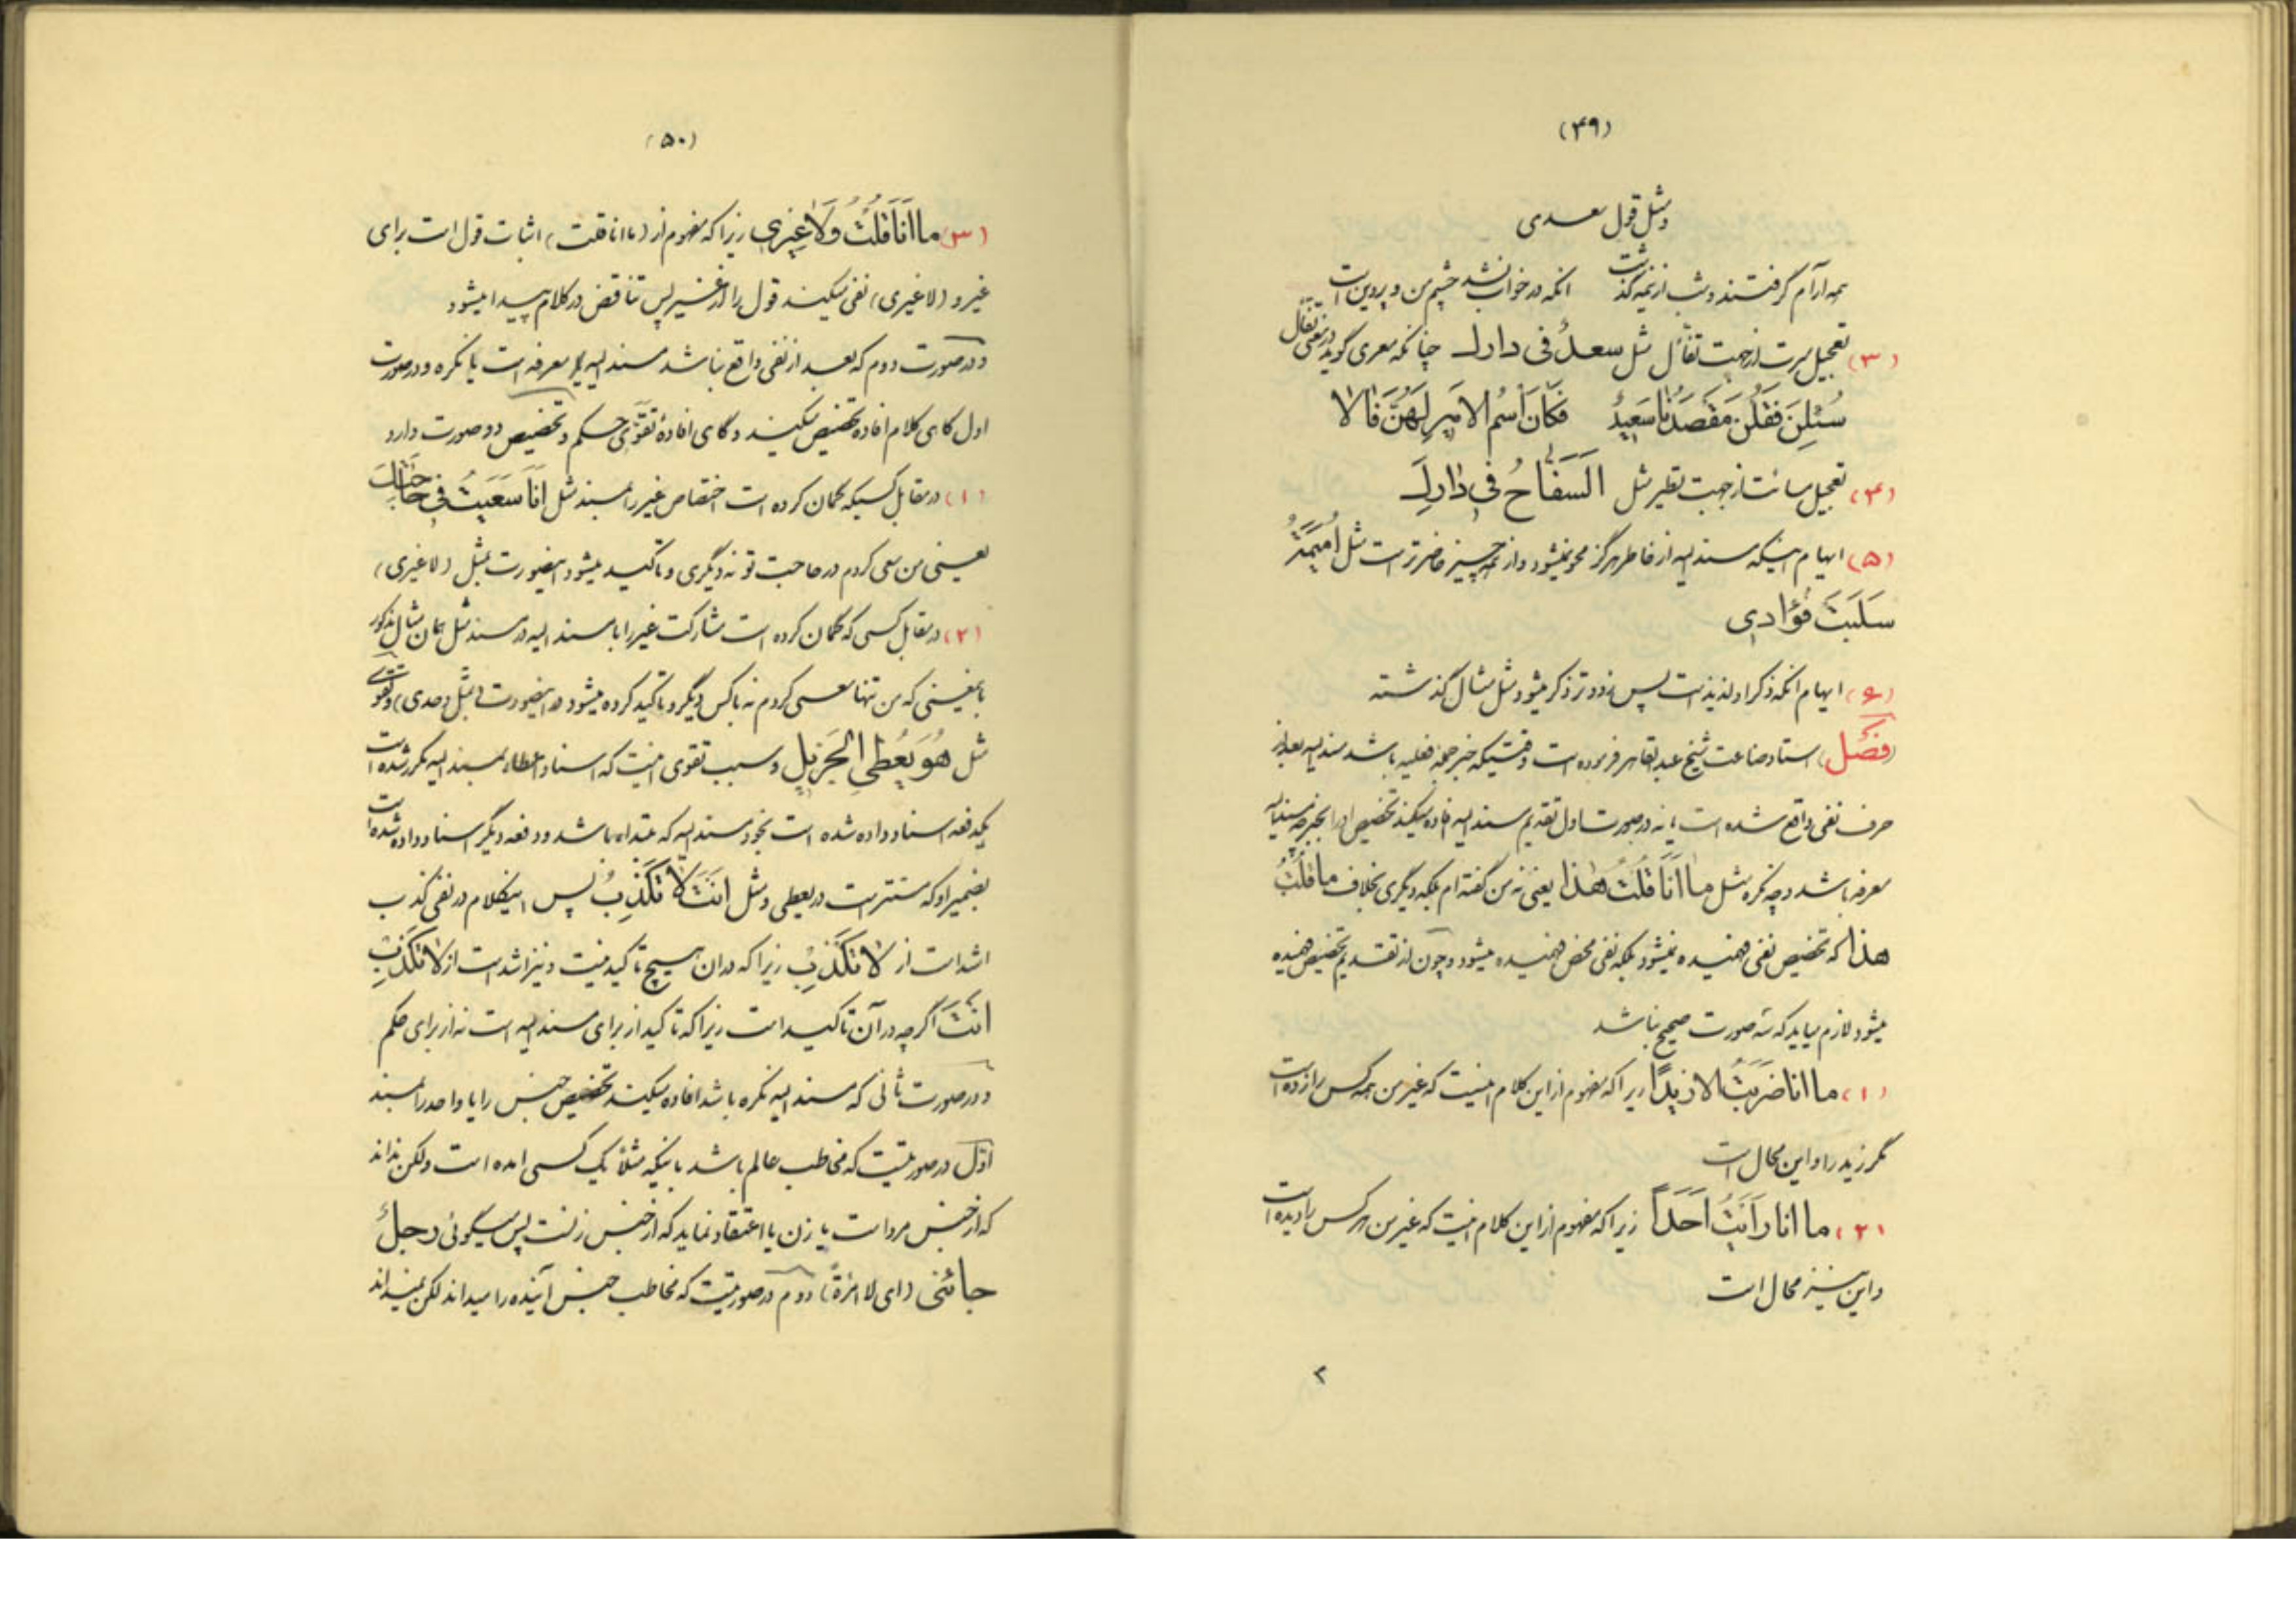 (۴۹)
ومثل قول سعدی
همه آرام گرفتند و شب از نیمه گذشت    انکه در خواب نشد چشم من و پروین است
(۳) تعجیل مسرت از جهت تفأل مثل سعدٌ فی دارك چنانکه معری گوید در معنی تفأل
سُئِلنَ فَقُلنَ مَقصَدُنا سَعیدٌ    فَکانَ اسمُ الامیرِ لَهُنَّ فالا
(۴) تعجیل مسائت از جهت تطیر مثل السَّفّاحُ فی دارِكَ
(۵) ایهام اینکه مسند الیه از خاطر هرگز محو نمیشود و از همه چیز حاضرتر است مثل اُمَیمَةُ
سَلَبَت فُؤادی
(۶) ایهام انکه ذکر او لذیذ است پس زودتر ذکر میشود مثل مثال گذشته
(فصل) استاد صناعت شیخ عبد القاهر فرموده است وقتیکه خبر جمله فعلیه باشد مسند الیه بعد از
حرف نفی واقع شده است یا نه در صورت اول تقدیم مسند الیه افاده میکند تخصیص او را بخبر چه مسند الیه
معرفه باشد و چه نکره مثل ما اَنَا قُلتُ هذا یعنی نه من گفته ام بلکه دیگری بخلاف ما قُلتُ
هذا که تخصیص نفی فهمیده نمیشود بلکه نفی محض فهمیده میشود و چون از تقدیم تخصیص فهمیده
میشود لازم میاید که سه صورت صحیح نباشد
(۱) ما انا ضَرَبتُ الا زیدًا زیرا که مفهوم از این کلام اینست که غیر من همه کس را زده است
مگر زید را و این محال است
(۲) ما انا رَاَیتُ اَحَدًا زیرا که مفهوم از این کلام اینست که غیر من هر کس را دیده است
و این نیز محال است
۲
(۵۰)
(۳) ما اَنَا قُلتُ وَلا غَیری زیرا که مفهوم از (ما انا قلت) اثبات قول است برای
غیر و (لا غیری) نفی میکند قول را از غیر پس تناقض در کلام پیدا میشود
و در صورت دوم که بعد از نفی واقع نباشد مسند الیه یا معرفه است یا نکره و در صورت
اول گاهی کلام افاده تخصیص میکند و گاهی افادهٔ تقوّی حکم و تخصیص دو صورت دارد
(۱) در مقابل کسیکه گمان کرده است اختصاص غیر را بمسند مثل اَنَا سَعَیتُ فی حاجَتِكَ
یعنی من سعی کردم در حاجت تو نه دیگری و تاکید میشود اینصورت بمثل (لا غیری)
(۲) در مقابل کسی که گمان کرده است مشارکت غیر را با مسند الیه در مسند مثل همان مثال مذکور
بامعنی که من تنها سعی کردم نه با کس دیگر و تاکید کرده میشود در اینصورت بمثل (وحدی) و تقوی
مثل هُوَ یُعطی الجَزیلَ و سبب تقوی اینست که اسناد اعطاء بمسند الیه مکرر شده است
یکدفعه اسناد داده شده است بخود مسند الیه که مبتداء باشد و دفعه دیگر اسناد داده شده است
بضمیر او که مستتر است در یعطی و مثل اَنتَ لا تَکذِبُ پس اینکلام در نفی کذب
اشد است از لا تَکذِبُ زیرا که در ان هیچ تاکید نیست و نیز اشد است از لا تَکذِبُ
اَنتَ اگر چه در آن تاکید است زیرا که تاکید از برای مسند الیه است نه از برای حکم
و در صورت ثانی که مسند الیه نکره باشد افاده میکند تخصیص جنس را یا واحد را بمسند
اوّل در صورتیست که مخاطب عالم باشد باینکه مثلاً یک کسی امده است ولکن نداند
که از جنس مرد است یا زن یا اعتقاد نماید که از جنس زنست پس میگوئی رجلٌ
جائنی (ای لا امرَاَةٌ) دوم در صورتیست که مخاطب جنس آینده را میداند لکن نمیداند